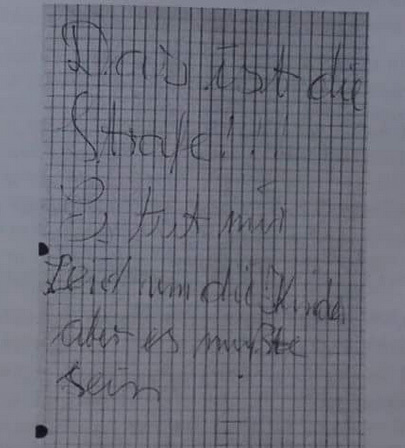 Das ist die
Strafe!!!
Es tut mir
Leid um die Kinder
aber es mußte
sein